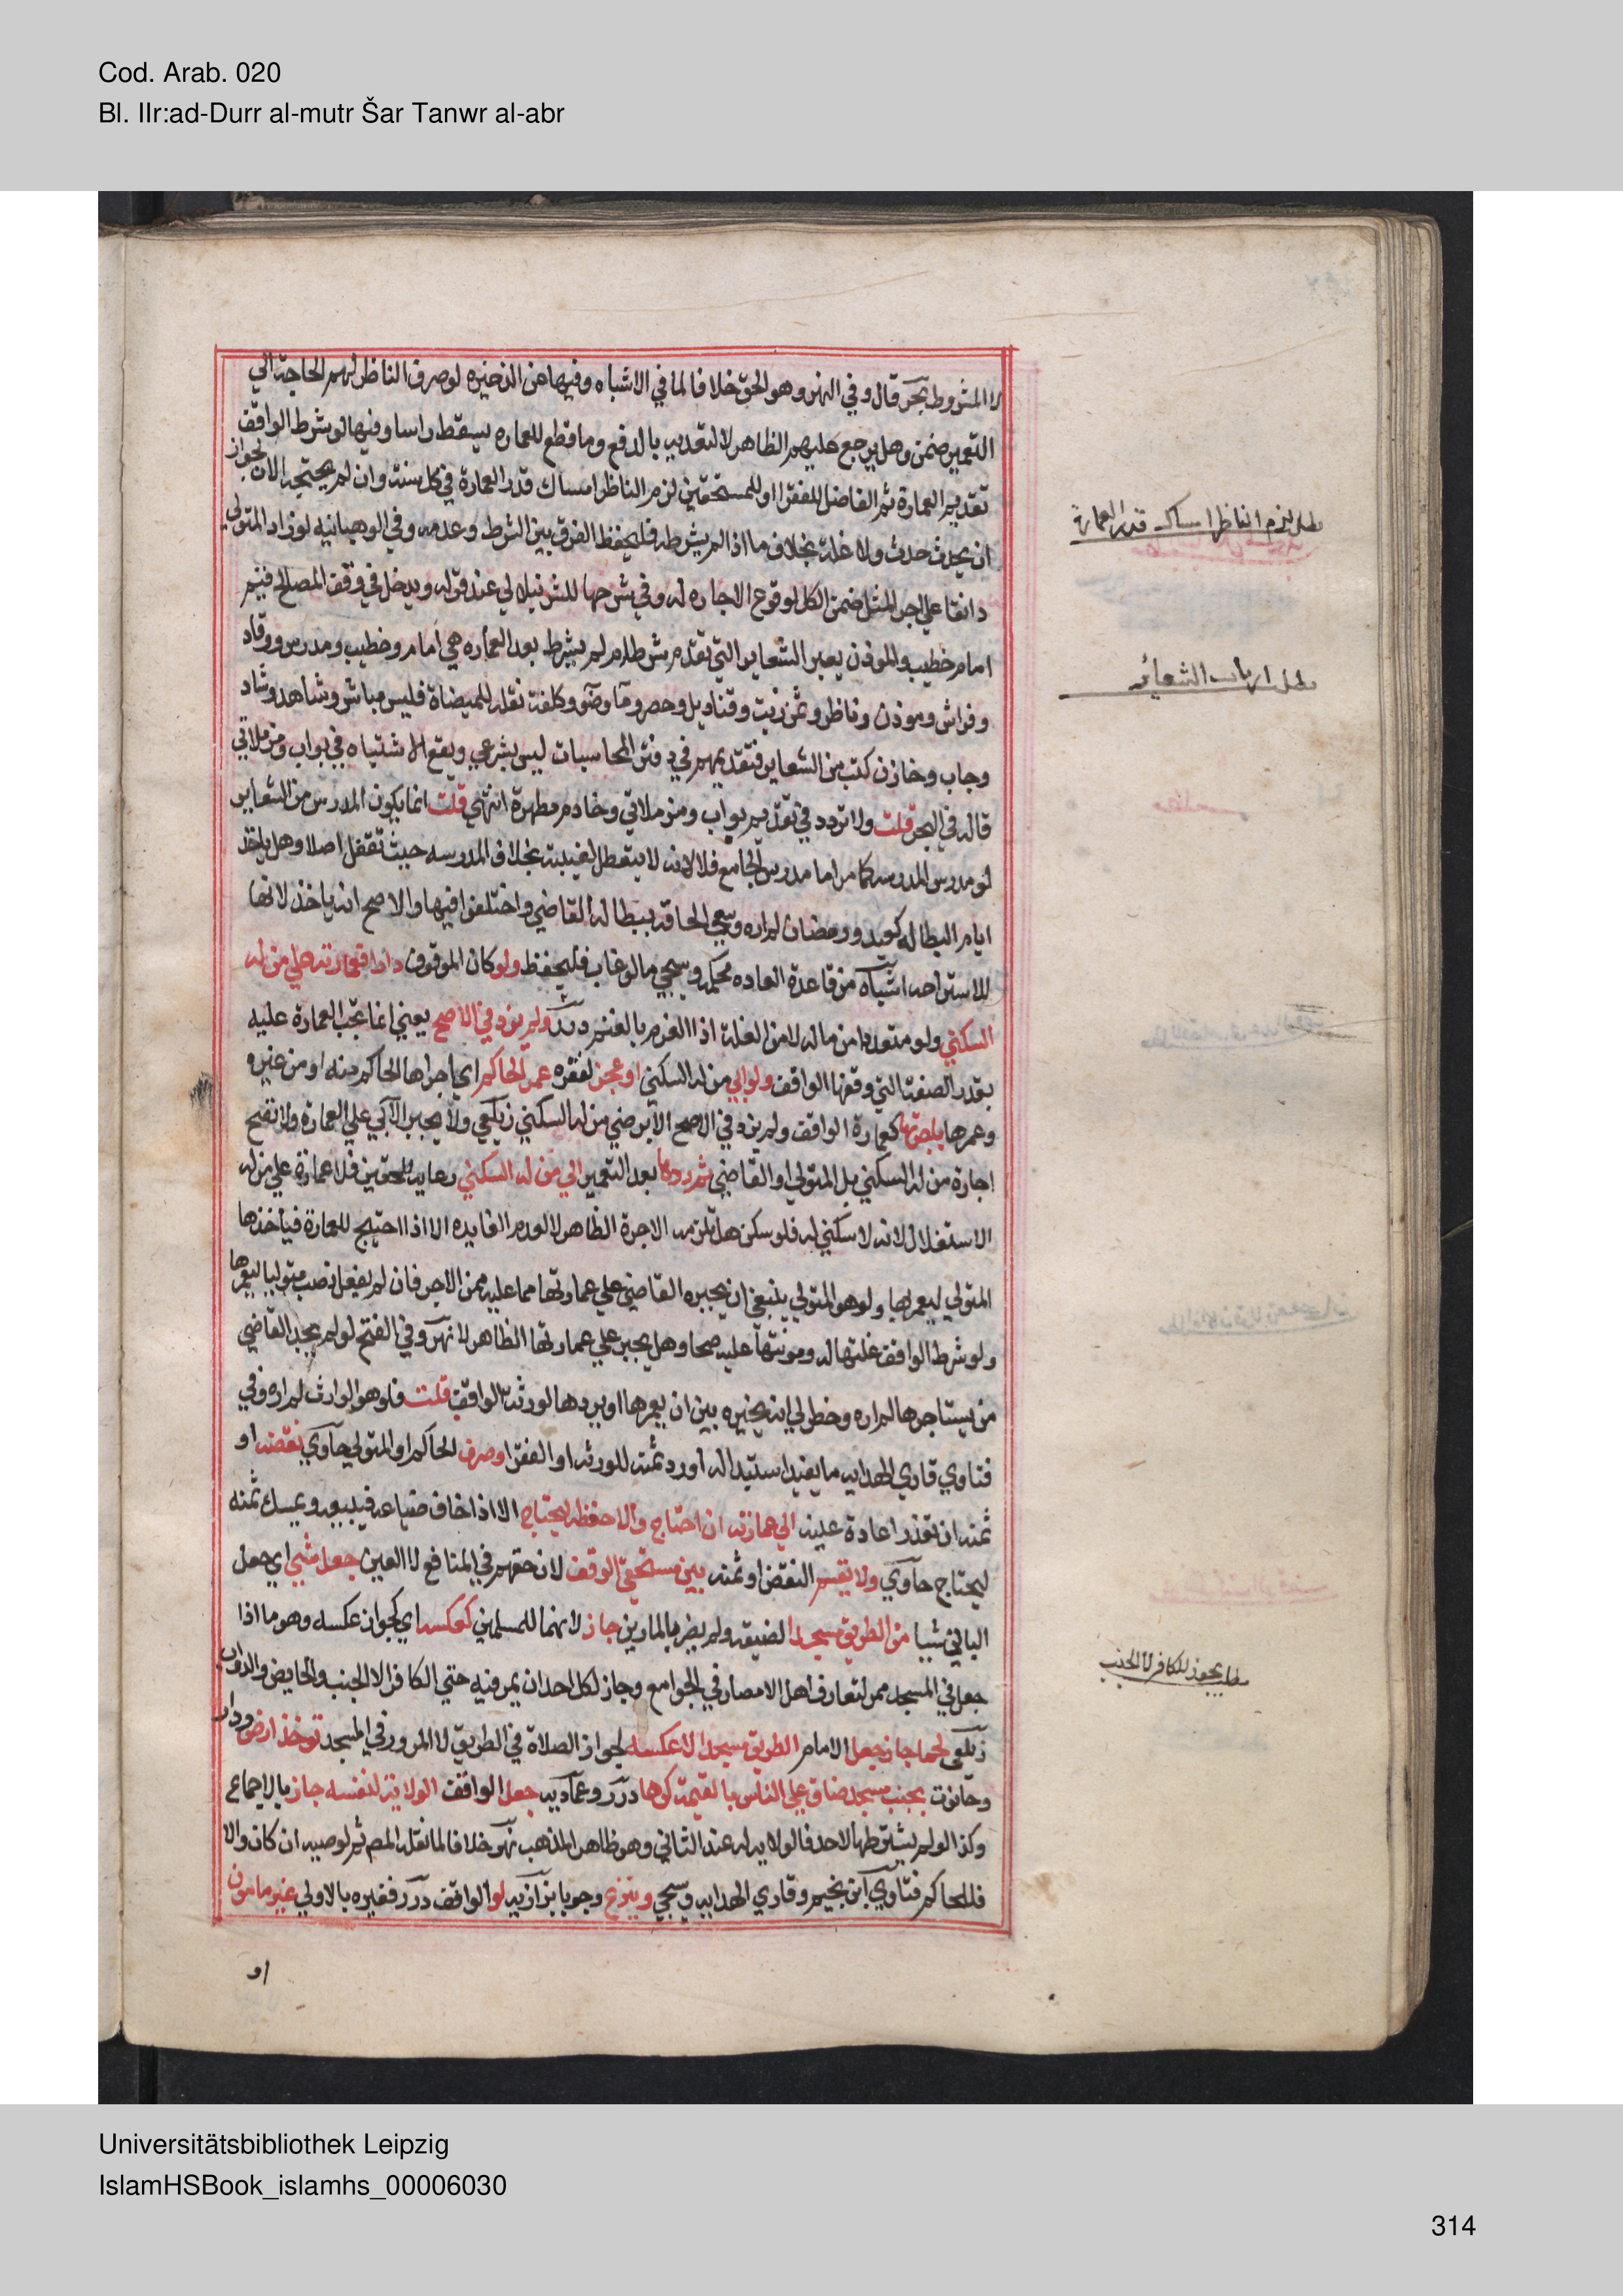 Cod. Arab. 020
Bl. IIr:ad-Durr al-mutr Šar Tanwr al-abr
لا المشروط بحر قال وفي النهر وهو الحق خلافا لما في الاشباه وفيها عن الذخيره لو صرف الناظر لهم الحاجة الي
التعمير ضمن وهل يرجع عليهم الظاهر لا لتعديه بالدفع وما قطع للعماره يسقط راسا وفيها لو شرط الواقف
تقديم العمارة ثم الفاضل للفقرا او للمستحقين لزم الناظر امساك قدر العمارة في كل سنة وان لم يحتجه الان لجواز
ان يحدث حدث ولا غلة بخلاف ما اذا لم يشرطه فليحفظ الفرق بين الشرط وعدمه وفي الوهبانيه لو زاد المتولي
دانقا علي اجر المثل ضمن الكل لوقوع الاجاره له وفي شرحها للشرنبلالي عند قوله ويدخل في وقف المصالح قيم
امام خطيب والموذن يعبر الشعاير التي تقدم شرط ام لم يشرط بعد العماره هي امام وخطيب ومدرس ووقاد
وفراش وموذن وناظر وثمن زيت وقناديل وحصر وما وضو وكلفة نقله للميضاة فليس مباشر وشاهد وشاد
وجاب وخازن كتب من الشعاير فتقديمهم في دفتر المحاسبات ليس بشرعي ويقع الاشتباه في بواب ومزملاتي
قاله في البحر قلت ولا تردد في تقديم بواب ومزملاتي وخادم مطهرة انتهي قلت انما يكون المدرس من الشعاير
لو مدرس المدرسه كما مر اما مدرس الجامع فلا لانه لا يتعطل لغيبته بخلاف المدرسه حيث تقفل اصلا وهل ياخذ
ايام البطاله كعيد ورمضان لم اره وينبغي الحاقه ببطالة القاضي واختلفوا فيها والاصح انه ياخذ لانها
للاستراحه اشباه من قاعدة العاده محكمه وسيجي ما لو غاب فليحفظ ولو كان الموقوف دارا فعمارته علي من له
السكني ولو متعددا من ماله لا من الغلة اذ الغرم بالغنم درر ولم يزد في الاصح يعني انما تجب العمارة عليه
بقدر الصفة التي وقفها الواقف ولو ابي من له السكني او عجز لفقره عمر الحاكم اي اجراها الحاكم منه او من غيره
وعمرها باجرتها كعمارة الواقف ولم يزد في الاصح الا برضي من له السكني زيلعي ولا يجبر الآبي علي العمارة ولا تصح
اجارة من له السكني بل المتولي او القاضي ثم ردها بعد التعمير الي من له السكني رعاية للحقين فلا عمارة علي من له
الاستغلال لانه لا سكني له فلو سكن هل تلزمه الاجرة الظاهر لا لعدم الفايده الا اذا احتيج للعمارة فياخذها
المتولي ليعمر بها ولو هو المتولي ينبغي ان يجبره القاضي علي عمارتها مما عليه من الاجر فان لم يفعل نصب متوليا ليعمرها
ولو شرط الواقف غلتها له ومونتها عليه صحا وهل يجبر علي عمارتها الظاهر لا نهر وفي الفتح لو لم يجد القاضي
من يستاجرها لم اره وخطر لي انه يخيره بين ان يعمرها او يردها لورثة الواقف قلت فلو هو الوارث لم اره وفي
فتاوي قاري الهدايه ما يفيد استبداله او رد ثمنه للورثه او الفقرا وصرف الحاكم او المتولي حاوي نقضه او
ثمنه ان تعذر اعادة عينه الي عمارته ان احتاج والا حفظه ليحتاج الا اذا خاف ضياعه فيبيعه ويمسك ثمنه
ليحتاج حاوي ولا يقسم النقض او ثمنه بين مستحقي الوقف لان حقهم في المنافع لا العين جعل شي اي جعل
الباني شيا من الطريق مسجدا لضيقه ولم يضر بالمارين جاز لانهما للمسلمين كعكسه اي كجواز عكسه وهو ما اذا
جعل في المسجد ممر لتعارف اهل الامصار في الجوامع وجاز لكل احد ان يمر فيه حتي الكافر الا الجنب والحايض والدواب
زيلعي كما جاز جعل الامام الطريق مسجدا لا عكسه لجواز الصلاة في الطريق لا المرور في المسجد توخذ ارض ودار
وحانوت بجنب مسجد ضاق علي الناس بالقيمة كرها درر وعماديه جعل الواقف الولاية لنفسه جاز بالاجماع
وكذا لو لم يشترطها لاحد فالولايه له عند الثاني وهو ظاهر المذهب نهر خلافا لما نقله المص ثم لوصيه ان كان والا
فللحاكم فتاوي ابن نجيم وقاري الهدايه وسيجي وينزع وجوبا بزازيه لو الواقف درر فغيره بالاولي غير مامون
او
مطلب يلزم الناظر امساك قدر العمارة
مطلب ارباب الشعائر
مطلب يجوز للكافر لا الجنب
Universitätsbibliothek Leipzig
IslamHSBook_islamhs_00006030
314